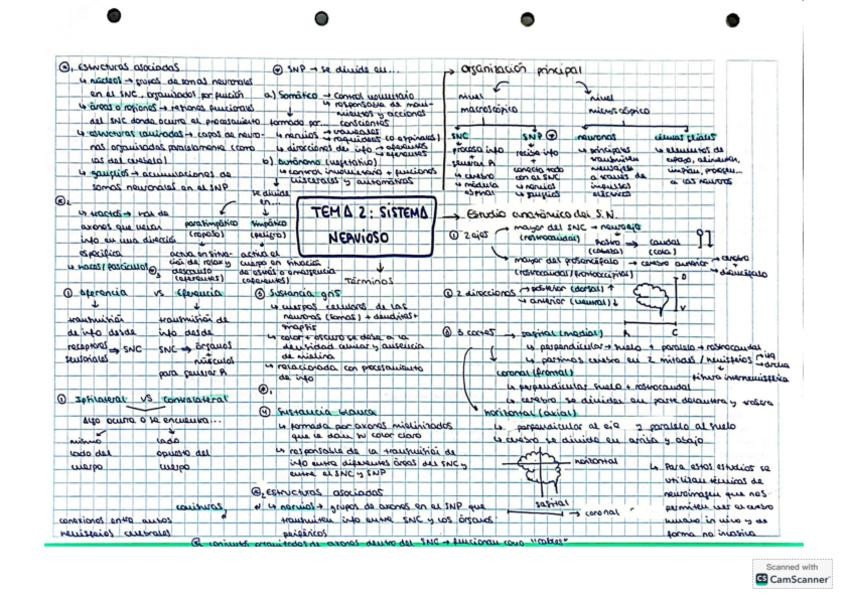 estructuras asociadas
↳ núcleos → grupos de somas neuronales
en el SNC, organizados por función
↳ áreas o regiones → regiones funcionales
del SNC donde ocurre el procesamiento
↳ estructuras laminadas → capas de neuro-
nas organizadas paralelamente (como
las del cerebelo)
↳ ganglios → acumulaciones de
somas neuronales en el SNP
↳ tractos → haz de
axones que llevan
info en una dirección
específica
↳ haces/fascículos
① aferencia vs eferencia
transmisión de info desde receptores sensoriales → SNC
transmisión de info desde SNC → órganos músculos
para generar R
① Ipsilateral vs Contralateral
algo ocurre o se encuentra...
mismo lado del cuerpo
lado opuesto del cuerpo
comisuras
conexiones entre ambos
hemisferios cerebrales
SNP → se divide en...
a) Somático → control voluntario
↳ responsable de movi-
mientos y acciones
conscientes
formado por...
↳ nervios → craneales
↳ raquídeos (o espinales)
↳ direcciones de info → aferentes
↳ eferentes
b) autónomo (vegetativo)
↳ control involuntario + funciones
viscerales y automáticas
se divide
en...
parasimpático
(reposo)
simpático
(peligro)
activa en situa-
ción de relax y
descanso
(eferentes)
activa el
cuerpo en situación
de estrés o emergencia
(eferentes)
TEMA 2: SISTEMA
NERVIOSO
Términos
③ Sustancia gris
↳ cuerpos celulares de las
neuronas (somas) + dendritas +
↳ color + oscuro se debe a la
densidad celular y ausencia
de mielina
↳ relacionada con procesamiento
de info
④ Sustancia blanca
↳ formada por axones mielinizados
que le dan su color claro
↳ responsable de la transmisión de
info entre diferentes áreas del SNC y
entre el SNC y SNP
estructuras asociadas
↳ nervios → grupos de axones en el SNP que
transmiten info entre SNC y los órganos
periféricos
conjuntos organizados de axones dentro del SNC → funcionan como "cables"
organización principal
nivel
macroscópico
nivel
microscópico
SNC
procesa info
generar R
↳ cerebro
↳ médula
espinal
SNP
recibe info
conecta todo
con el SNC
↳ nervios
↳ ganglios
neuronas
↳ principales
transmiten
mensajes
a través de
impulsos
eléctricos
células gliales
↳ elementos de
apoyo, alimentan,
limpian, protegen...
a las neuronas
→ Estudio anatómico del S.N.
① 2 ejes
mayor del SNC → neuroeje
(rostrocaudal)
rostro
(cabeza)
caudal
(cola)
mayor del prosencéfalo → cerebro anterior → cerebro
→ diencéfalo
(rostrocaudal/frontooccipital)
② 2 direcciones → posterior (dorsal) ↑
→ anterior (ventral) ↓
D
V
A
C
③ 3 cortes → sagital (medial)
↳ perpendicular → suelo + paralelo → rostrocaudal
↳ partimos cerebro en 2 mitades / hemisferios → izq
→ drcha
fisura interhemisférica
coronal (frontal)
↳ perpendicular suelo + rostrocaudal
↳ cerebro se divide en parte delantera y trasera
horizontal (axial)
↳ perpendicular al eje y paralelo al suelo
↳ cerebro se divide en arriba y abajo
horizontal
sagital
→ coronal
↳ Para estos estudios se
utilizan técnicas de
neuroimagen que nos
permiten ver el cerebro
humano in vivo y de
forma no invasiva
Scanned with
CS CamScanner